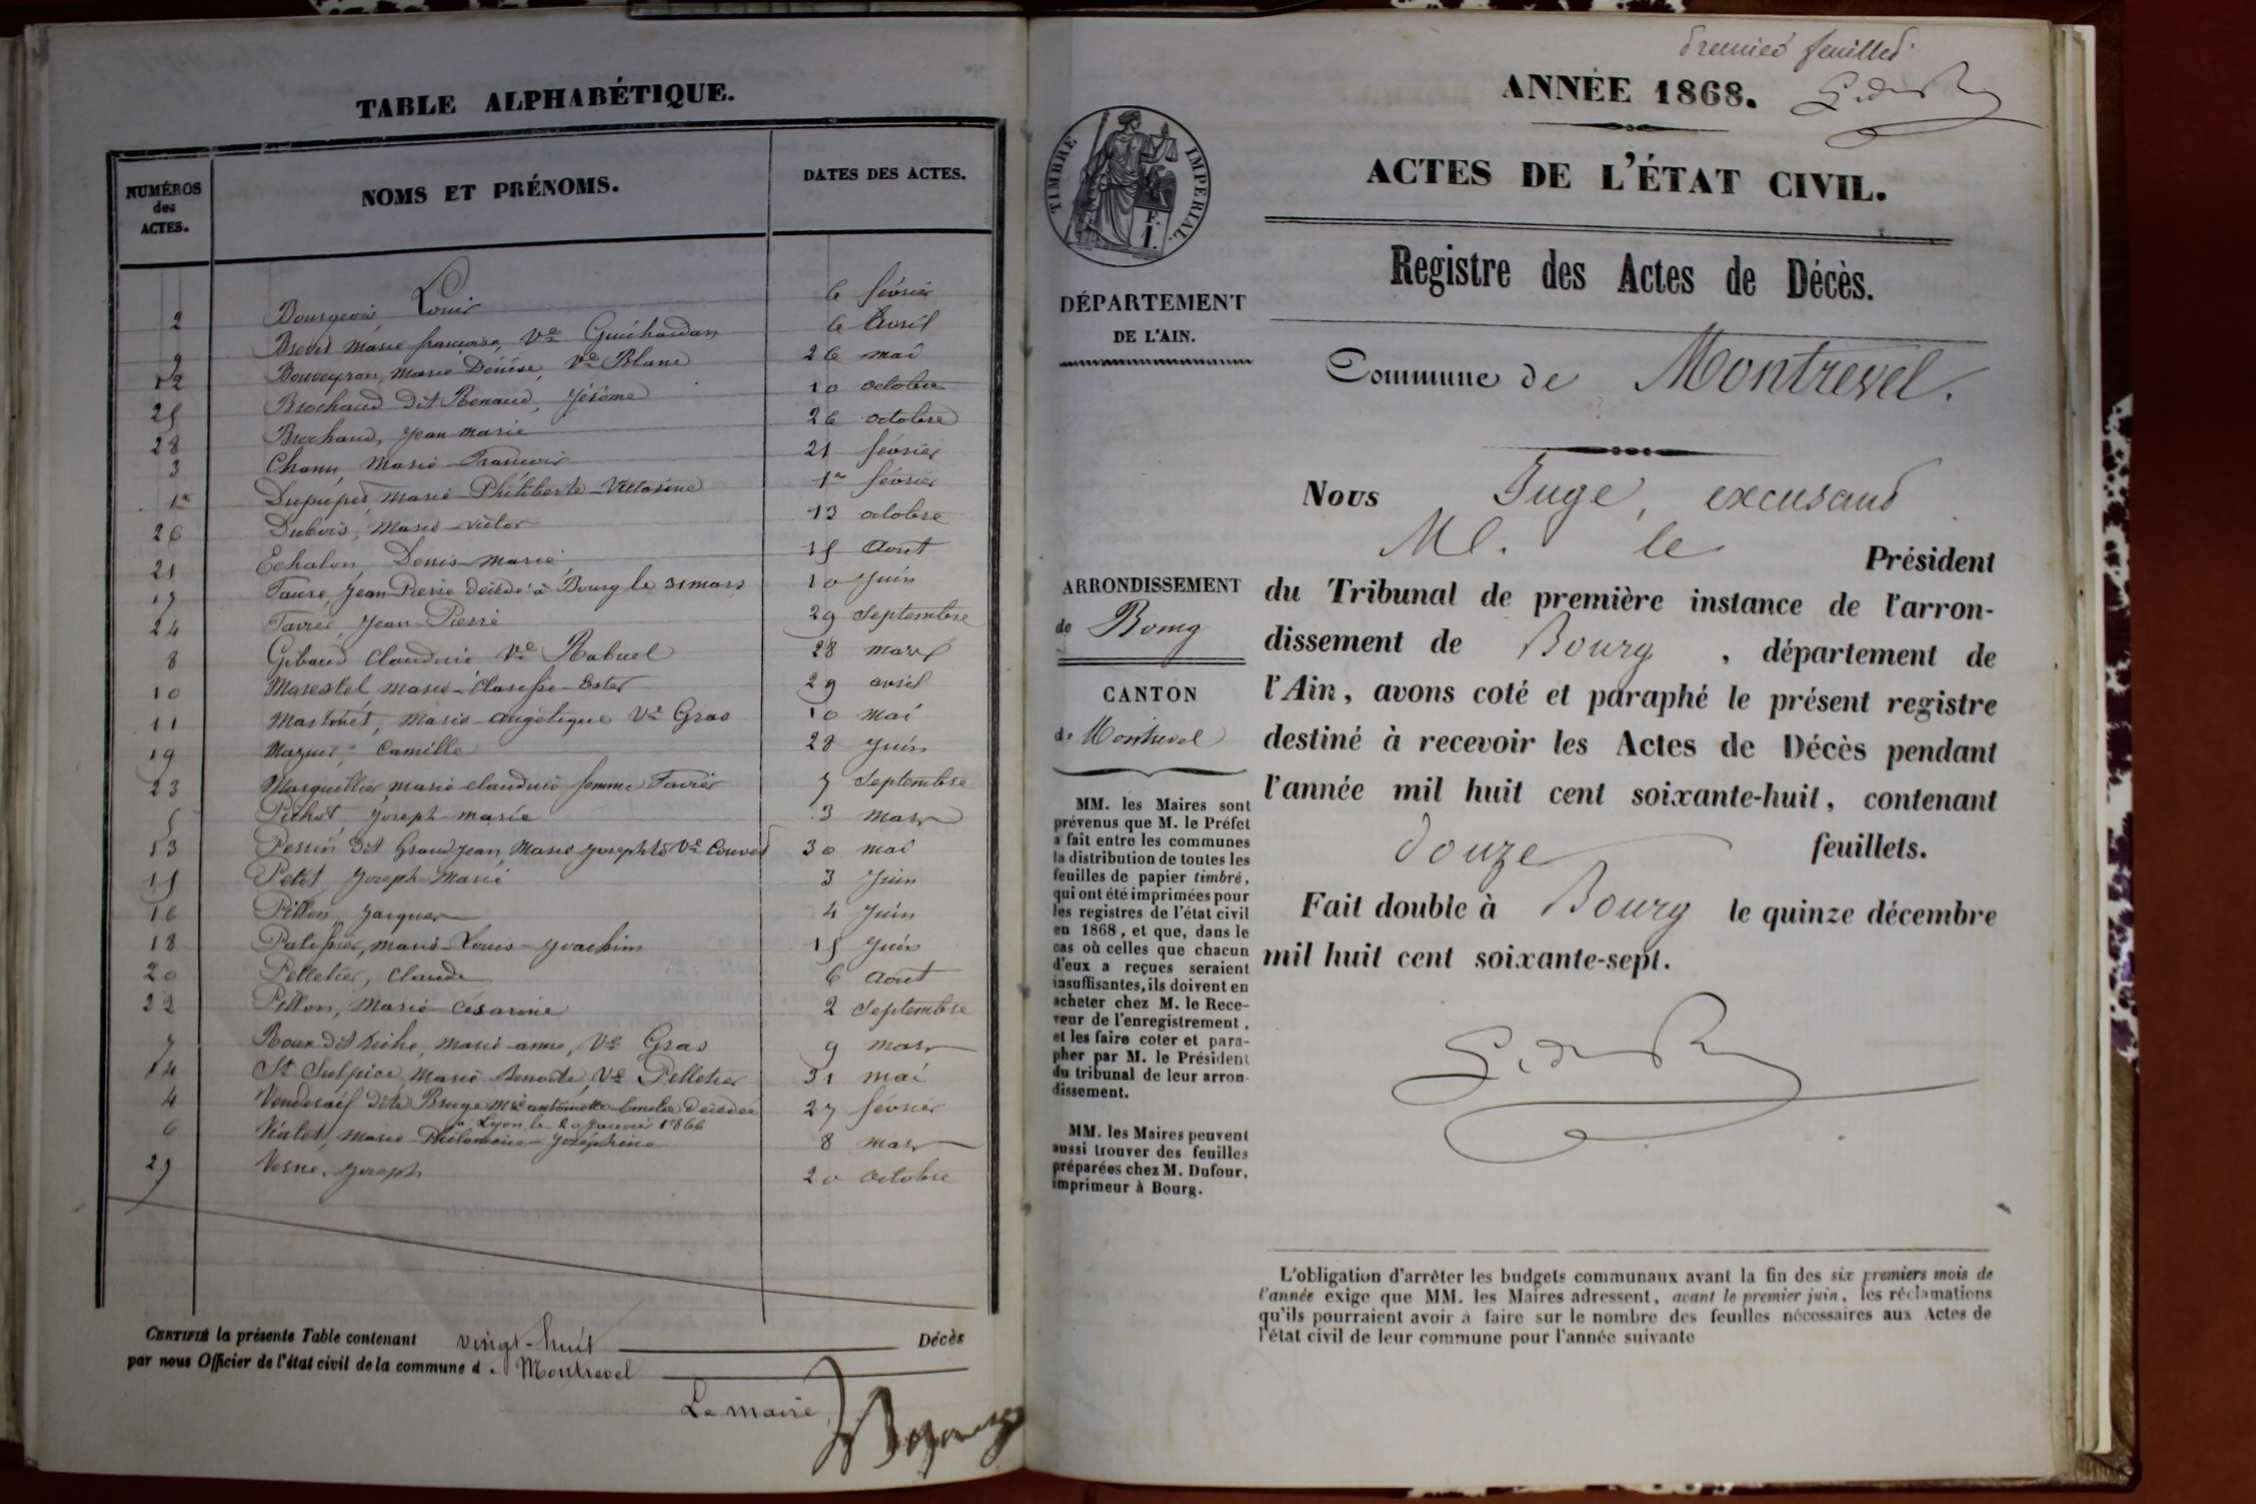 TABLE ALPHABÉTIQUE.
NUMÉROS des ACTES. NOMS ET PRÉNOMS. DATES DES ACTES.
2 Bourgeois Louis 6 février
9 marie françoise, Ve 6 avril
12 Bouveyron, marie Denise, Ve Blanc 26 mai
25 Brochaud dit Renaud, Jérôme 10 octobre
28 Brochaud, Jean marie 26 octobre
3 marie François 21 février
1er marie Philiberte 1er février
26 Dubois, marie victor 13 octobre
21 Echalon, Denis marie 15 Aout
17 Faure, Jean Pierre décédé à Bourg le 31 mars 10 Juin
24 Favier, Jean Pierre 29 Septembre
8 Gibaud Claudine Ve Rabuel 28 mars
10 Marestel marie Clarisse Ester 29 avril
11 marie angélique Ve Gras 10 mai
19 Camille 28 Juin
23 Marquillier marie claudine femme Favier 7 Septembre
5 Pithot, Joseph marie 3 mars
13 Perrin dit Grand Jean, Marie Josephte Ve 30 mai
15 Petit, Joseph Marie 3 Juin
16 Pillon, Jacques 4 Juin
18 marie Louis Joachim 15 Juin
20 Pelletier, Claude 6 Aout
22 Pillon, Marie Césarine 2 Septembre
7 Roux dit marie anne, Ve Gras 9 mars
14 St Sulpice, Marie Benoite, Ve Pelletier 31 mai
4 dite Bruge mie antoinette décédée 27 février
à Lyon le 20 Janvier 1866
6 marie Philomène Joséphine 8 mars
27 Verne, Joseph 20 octobre
CERTIFIÉ la présente Table contenant vingt-huit Décès
par nous Officier de l'état civil de la commune de Montrevel
Le maire
premier feuillet
ANNÉE 1868.
TIMBRE IMPÉRIAL.
ACTES DE L'ÉTAT CIVIL.
Registre des Actes de Décès.
DÉPARTEMENT
DE L'AIN.
Commune de Montrevel.
Nous Juge, excusant
M. le Président
du Tribunal de première instance de l'arron-
dissement de Bourg, département de
l'Ain, avons coté et paraphé le présent registre
destiné à recevoir les Actes de Décès pendant
l'année mil huit cent soixante-huit, contenant
douze feuillets.
Fait double à Bourg le quinze décembre
mil huit cent soixante-sept.
ARRONDISSEMENT
de Bourg
CANTON
de Montrevel
MM. les Maires sont
prévenus que M. le Préfet
a fait entre les communes
la distribution de toutes les
feuilles de papier timbré,
qui ont été imprimées pour
les registres de l'état civil
en 1868, et que, dans le
cas où celles que chacun
d'eux a reçues seraient
insuffisantes, ils doivent en
acheter chez M. le Rece-
veur de l'enregistrement,
et les faire coter et para-
pher par M. le Président
du tribunal de leur arron-
dissement.
MM. les Maires peuvent
aussi trouver des feuilles
préparées chez M. Dufour,
imprimeur à Bourg.
L'obligation d'arrêter les budgets communaux avant la fin des six premiers mois de
l'année exige que MM. les Maires adressent, avant le premier juin, les réclamations
qu'ils pourraient avoir à faire sur le nombre des feuilles nécessaires aux Actes de
l'état civil de leur commune pour l'année suivante